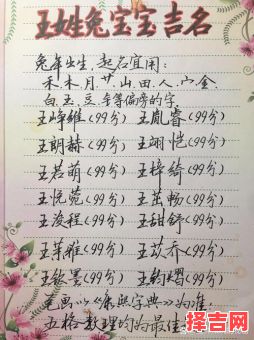 王姓兔宝宝吉名
兔年出生，起名宜用：
禾、木、月、艹、山、田、人、宀、金、
白、玉、豆、等偏旁的字。
王峥雄(99分) 王胤睿(99分)
王朗赫(99分) 王翊恺(99分)
王若萌(99分) 王梓绮(99分)
王悦菀(99分) 王茁畅(99分)
王浚程(99分) 王甜舒(99分)
王苹雅(99分) 王苡乔(99分)
王钦墨(99分) 王钧熠(99分)
笔画以《康熙字典》为准，
五格数理均为最佳
择吉网